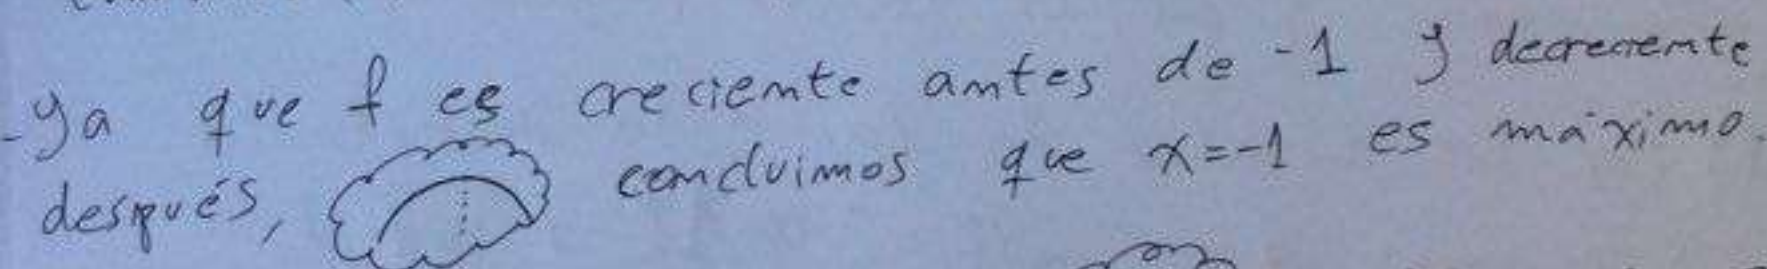 - Ya que f es creciente antes de -1 y decreciente
después, concluimos que x=-1 es máximo.